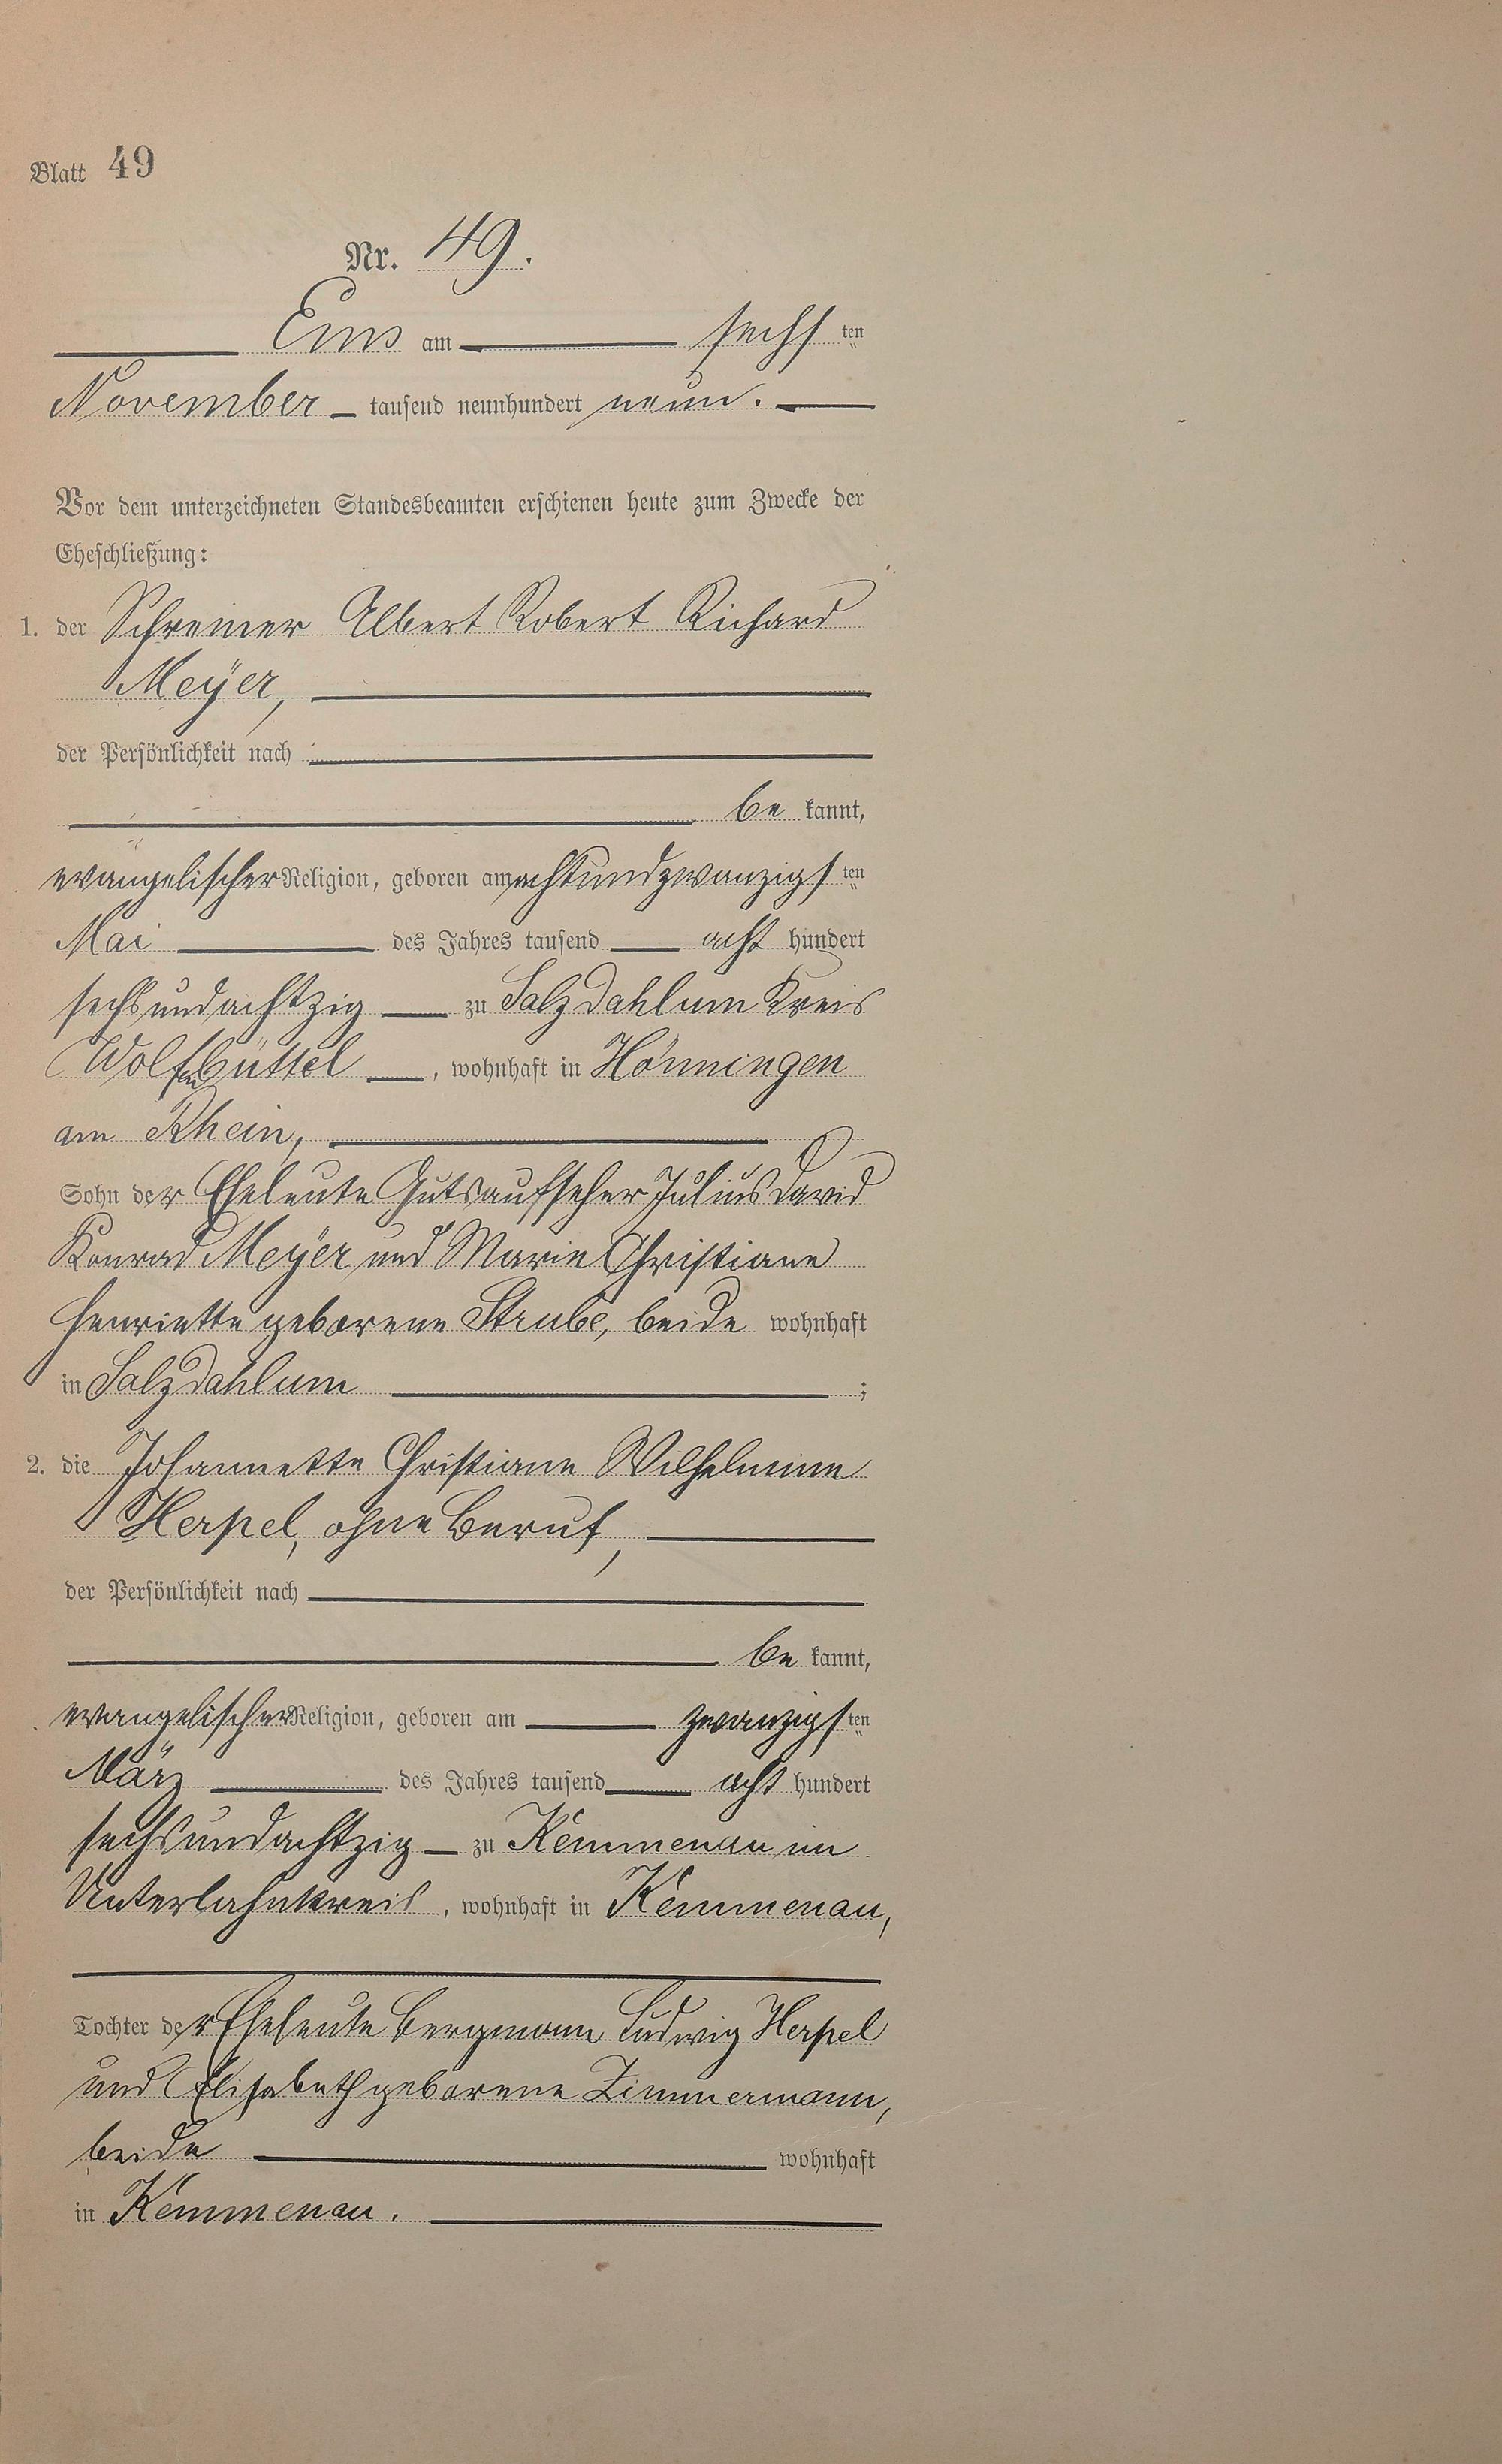 Blatt 49
Nr. 49.
Ems am sechsten
November tausend neunhundert neun.
Vor dem unterzeichneten Standesbeamten erschienen heute zum Zwecke der
Eheschließung:
1. der Schreiner Albert Robert Richard
Meÿer,
der Persönlichkeit nach
be kannt,
evangelischer Religion, geboren am achtundzwanzigsten
Mai des Jahres tausend acht hundert
sechsundachtzig zu Salzdahlum Kreis
Wolfenbüttel, wohnhaft in Hönningen
am Rhein,
Sohn der Eheleute Gutsaufseher Julius David
Konrad Meÿer und Marie Christiane
Henriette geborene Strube, beide wohnhaft
in Salzdahlum ;
2. die Johannette Christiane Wilhelmine
Herpel, ohne Beruf,
der Persönlichkeit nach
be kannt,
evangelischer Religion, geboren am zwanzigsten
März des Jahres tausend acht hundert
sechsundachtzig zu Kemmenau im
Unterlahnkreis, wohnhaft in Kemmenau,
Tochter der Eheleute Bergmann Ludwig Herpel
und Elisabeth geborene Zimmermann,
beide wohnhaft
in Kemmenau.